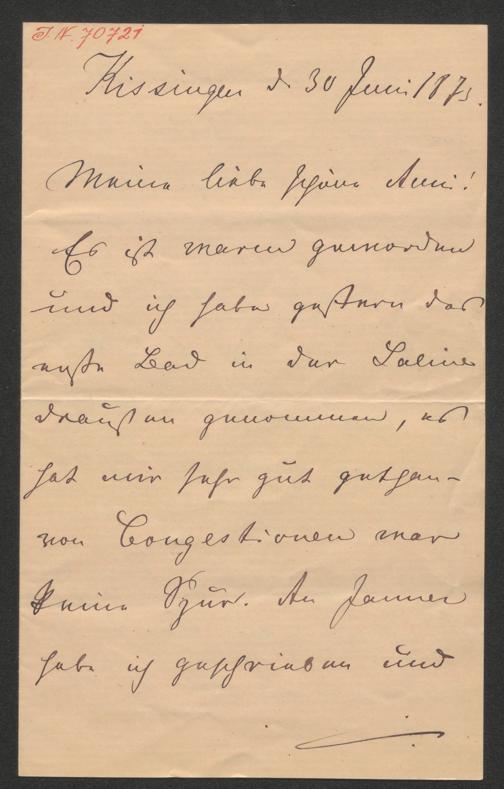 I.N. 70721
Kissingen d. 30 Juni 187
Meine liebe schöne Anni!
Es ist warm geworden
und ich habe gestern das
erste Bad in der Saline
draußen genommen, es
hat mir sehr gut gethan –
von Congestionen war
keine Spur. An Janner
habe ich geschrieben und